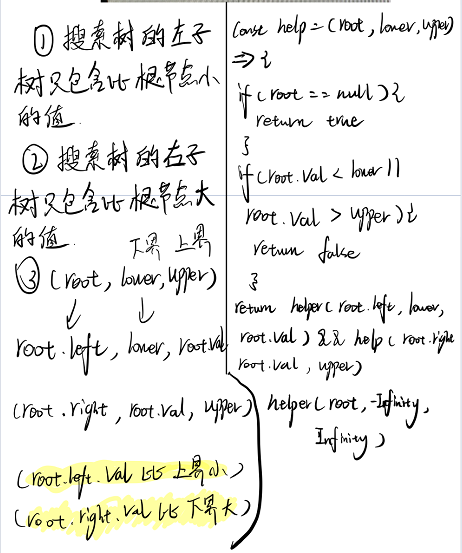 ① 搜索树的左子
树只包含比根节点小
的值.
② 搜索树的右子
树只包含比根节点大
的值.
下界 上界
③ (root, lower, upper)
↓ ↓
root.left, lower, root.val
(root.right, root.val, upper)
(root.left.val 比 上界小)
(root.right.val 比 下界大)
Const help = (root, lower, upper)
=> {
if (root == null) {
return true
}
if (root.val < lower ||
root.val > upper) {
return false
}
return helper(root.left, lower,
root.val) && help(root.right
root.val, upper)
helper(root, -Infinity,
Infinity)